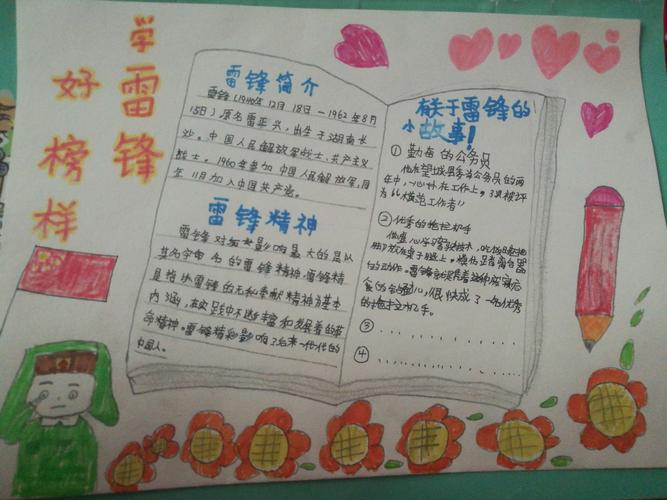 学雷锋
好榜样
雷锋简介
雷锋(1940年12月18日—1962年8月
15日)原名雷正兴,出生于湖南长
沙。中国人民解放军战士,共产主义
战士。1960年参加中国人民解放军,同
年11月加入中国共产党。
雷锋精神
雷锋对后来影响最大的是以
其名字命名的雷锋精神,雷锋精
是指以雷锋的无私奉献精神为基本
内涵,在实践中不断丰富和发展着的革
命精神。雷锋精神影响了后来一代代的
中国人。
有关于雷锋的
小故事!
①勤奋的公务员
他在望城县委当公务员的两
年中,一心扑在工作上,3次被评
为“模范工作者”
②优秀的拖拉机手
他虚心学习驾驶技术,
的动作。雷锋
心,很快成了一名优秀
的拖拉机手。
③..........
④..........